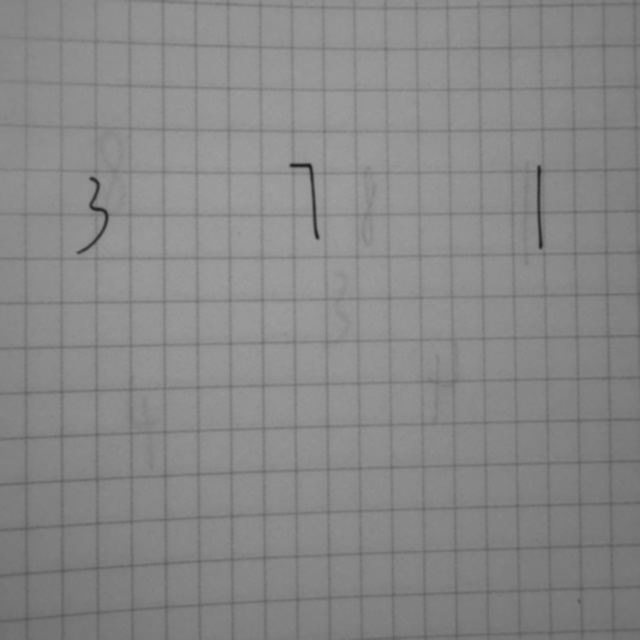 3 7 1